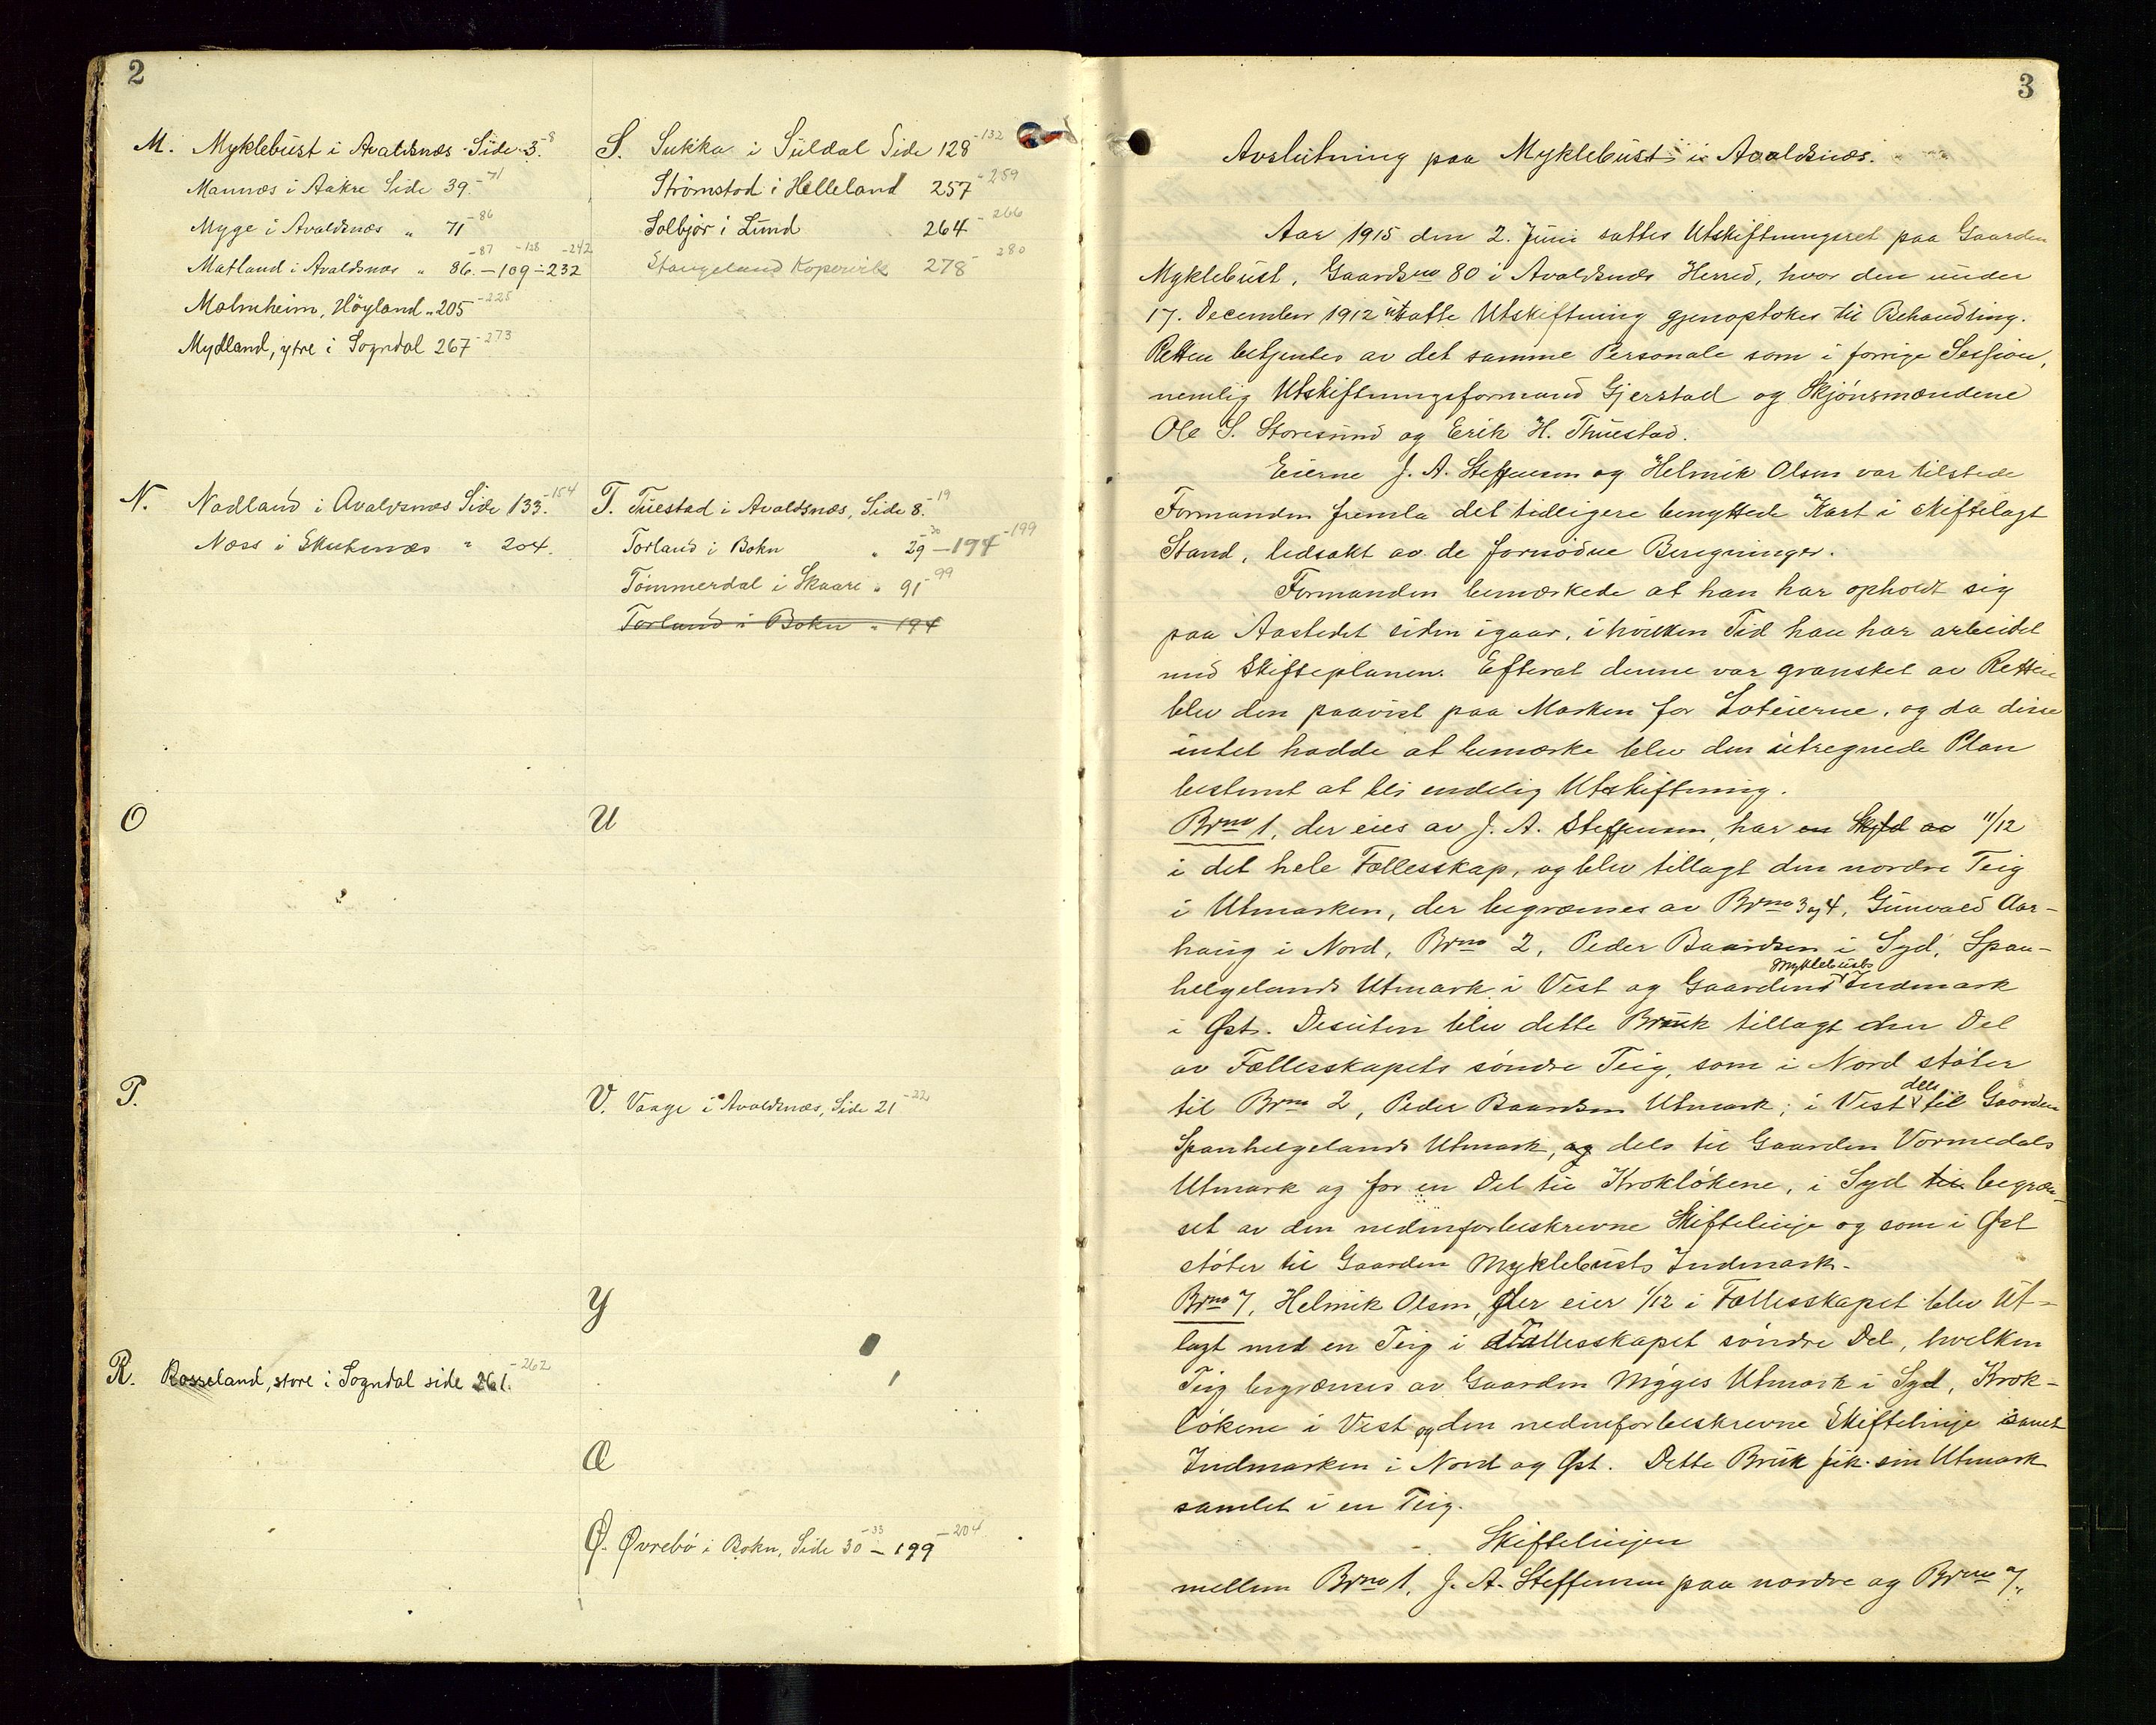 2
M. Myklebust i Avaldsnes Side 3.-8
Mannes i Aakre Side 39.-71
Myge i Avaldsnæs „ 71-86
Matland i Avaldsnæs „ 86.-87 -109-128 -232-242
Malmheim, Höyland „ 205-225
Mydland, ytre i Sogndal 267-273
N. Nadland i Avaldsnæs Side 133.-154
Næss i Skutenæs „ 204.
O
P.
R. Rosseland, store i Sogndal side 261.-262
S. Sukka i Suldal Side 128-132
Strömstad i Helleland 257-259
Solbjör i Lund 264-266
Stangeland Kopervik 278-280
T. Tuestad i Avaldsnæs, Side 8.-19
Torland i Bokn „ 29-30 -194-199
Tömmerdal i Skaare „ 91-99
Torland i Bokn „ 194
U
V. Vaage i Avaldsnæs, Side 21-22
Y
Æ
Ø. Øvrebö i Bokn, Side 30-33 - 199-204
3
Avslutning paa Myklebust i Avaldsnæs.
Aar 1915 den 2. Juni sattes Utskiftningsret paa Gaarden
Myklebust, Gaardsno 80 i Avaldsnæs Herred, hvor den under
17. December 1912 utsatte Utskiftning gjenoptokes til Behandling.
Retten betjentes av det samme Personale som i forrige Session,
nemlig Utskiftningsformand Gjerstad og Skjönsmændene
Ole S. Storesund og Erik H. Thuestad.
Eierne J. A. Steffensen og Helmik Olsen var tilstede
Formanden fremla det tidligere benyttede Kart i skiftelagt
Stand, ledsakt av de fornödne Beregninger.
Formanden bemærkede at han har opholdt sig
paa Aastedet siden igaar, i hvilken Tid han har arbeidet
med Skifteplanen. Efterat denne var gransket av Retten
blev den paavist paa Marken for Loteierne, og da disse
intet hadde at bemærke blev den utregnede Plan
bestemt at bli endelig Utskiftning.
Brno 1, der eies av J. A. Steffensen, har en Skyld av 11/12
i det hele Fællesskap, og blev tillagt den nordre Teig
i Utmarken, der begrænses av Brno 3 og 4, Gunvald Aar-
haug i Nord, Brno 2, Peder Baardsen i Syd, Span-
helgelands Utmark i Vest og Gaardens Myklebusts Indmark
i Øst. Desuten blev dette Bruk tillagt den Del
av Fællesskapets söndre Teig, som i Nord stöter
til Brno 2, Peder Baardsen Utmark; i Vest dels til Gaarden
Spanhelgelands Utmark, og dels til Gaarden Vormedals
Utmark og for en Del til Kroklökene, i Syd til begræn-
set av den nedenforbeskrevne Skiftelinje og som i Øst
stöter til Gaarden Myklebusts Indmark.
Brno 7, Helmik Olsen, der eier 1/12 i Fællesskapet blev Ut-
lagt med en Teig i Fællesskapet söndre Del, hvelken
Teig begrænses av Gaarden Myges Utmark i Syd, Krok-
lökene i Vest og den nedenforbeskrevne Skiftelinje samt
Indmarken i Nord og Øst. Dette Bruk fik sin Utmark
samlet i en Teig.
Skiftelinjen
mellem Brno 1, J. A. Steffensen paa nordre og Brno 7,